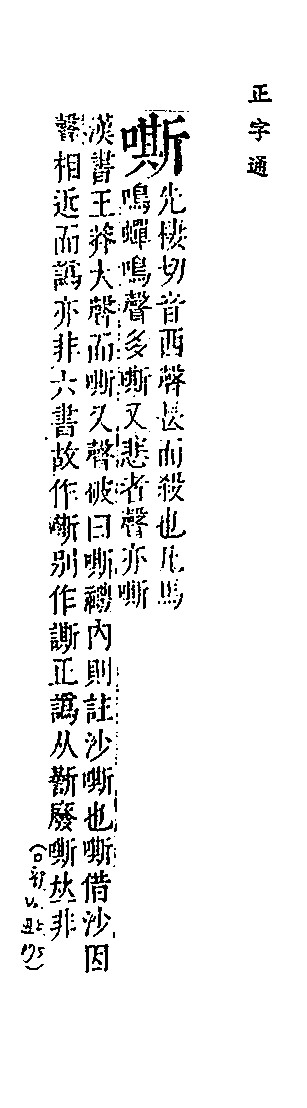 正字通
嘶
先棲切音西聲長而殺也凡馬
鳴蟬鳴聲多嘶又悲者聲亦嘶
漢書王莽大聲而嘶又聲破曰嘶禮內則註沙嘶也嘶借沙因
聲相近而譌亦非六書故作嘶別作誓正譌从斷廢嘶𠀤非